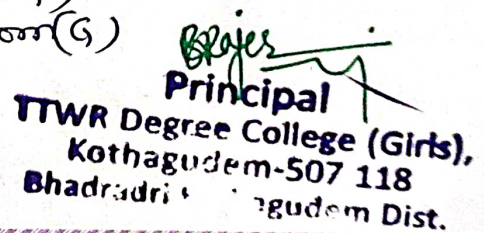 (G)
BRajes
Principal
TTWR Degree College (Girls),
Kothagudem-507 118
Bhadradri Dist.